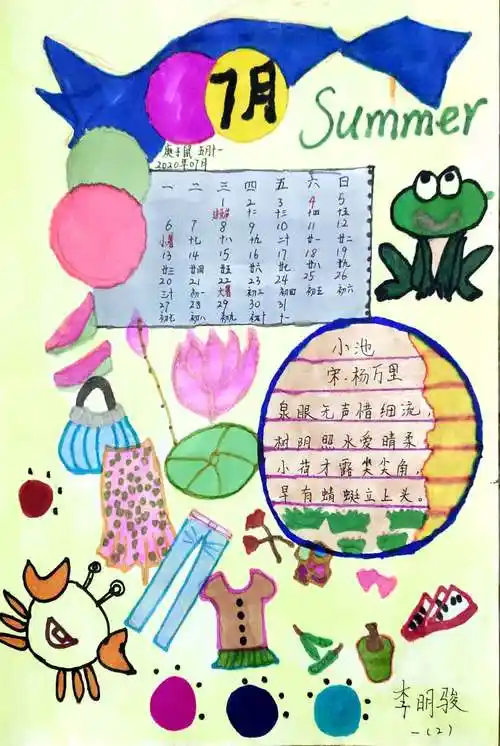 7月
Summer
庚子鼠 五月十一
2020年07月
一 二 三 四 五 六 日
1 2 3 4 5
十二 十三 十四 十五
6 7 8 9 10 11 12
小暑 十七 十八 十九 二十 廿一 廿二
13 14 15 16 17 18 19
廿三 廿四 廿五 廿六 廿七 廿八 廿九
20 21 22 23 24 25 26
三十 初一 大暑 初三 初四 初五 初六
27 28 29 30 31
初七 初八 初九 初十 十一
小池
宋·杨万里
泉眼无声惜细流,
树阴照水爱晴柔
小荷才露尖尖角,
早有蜻蜓立上头。
李明骏
一(2)